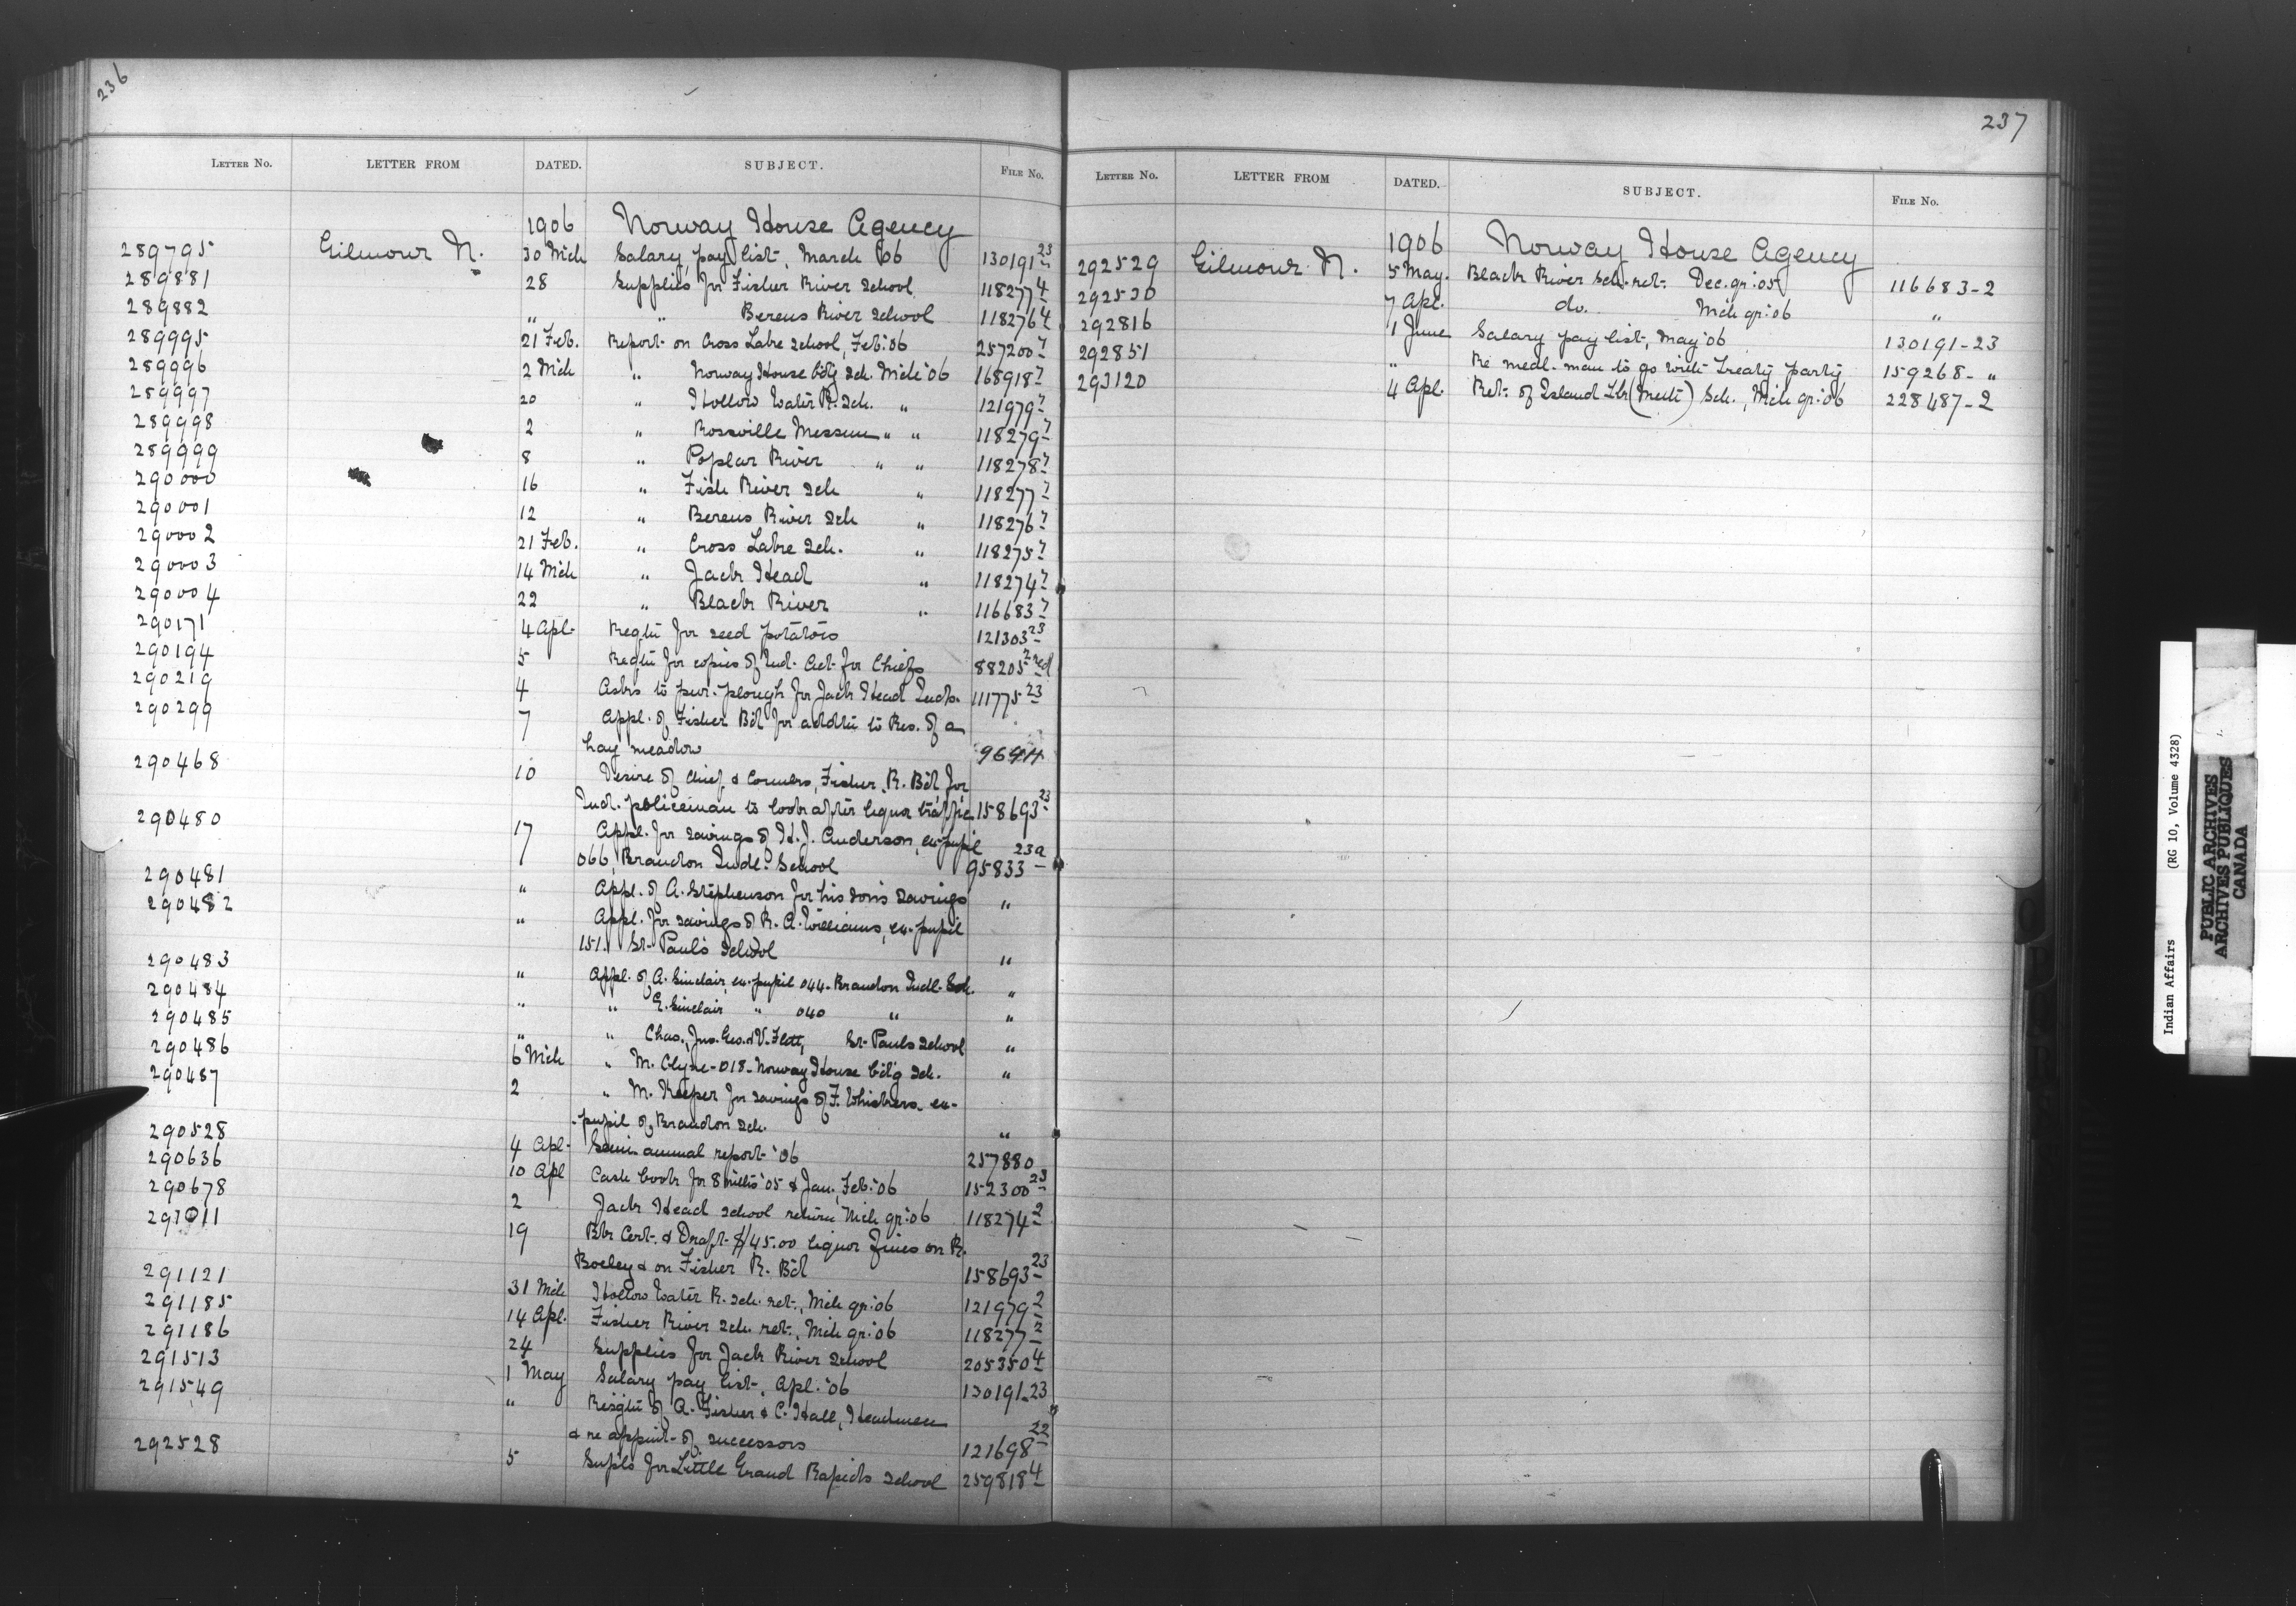 236
LETTER NO. LETTER FROM DATED. SUBJECT. FILE NO.
1906 Norway House Agency
289795 Gilmour N. 30 Mch Salary pay list, March '06 130191-23
289881 28 Supplies for Fisher River School 118277-4
289882 " " Berens River School 118276-4
289995 21 Feb. Report on Cross Lake School, Feb. '06 257200-7
289996 2 Mch " Norway House b'd'g Sch. Mch '06 168918-7
289997 20 " Hollow Water R. Sch. " 121979-7
289998 2 " Rossville Mission " " 118279-7
289999 8 " Poplar River " " 118278-7
290000 16 " Fish River Sch " 118277-7
290001 12 " Berens River Sch " 118276-7
290002 21 Feb. " Cross Lake Sch. " 118275-7
290003 14 Mch " Jack Head " 118274-7
290004 22 " Black River " 116683-7
290171 4 Apl. Reqtn for seed potatoes 121303-23
290194 5 Reqtn for copies of Ind. Act for Chiefs 88205-2 red
290219 4 Asks to pur. plough for Jack Head Inds. 111775-23
290299 7 Appl. of Fisher B'd for addtn to Res. of a
hay meadow
290468 10 Desire of Chief & Conclrs, Fisher R. B'd, for
Ind. policeman to look after liquor traffic 158693-23
290480 17 Appl. for savings of H.J. Anderson, ex-pupil
066, Brandon Indl. School 95833-23a
290481 " Appl. of A. Stephenson for his son's savings "
290482 " Appl. for savings of R. A. Williams, ex-pupil
151. St. Paul's School "
290483 " Appl. of A. Sinclair, ex-pupil 044-Brandon Indl. Sch. "
290484 " " E. Sinclair " 040 " "
290485 " " Chas., Jno. Geo. & V. Flett, St. Pauls School "
290486 6 Mch " M. Clyne-018-Norway House b'd'g Sch. "
290487 2 " M. Keeper for savings of F. Whiskers, ex-
-pupil of Brandon Sch. "
290528 4 Apl. Semi-annual report '06 257880
290636 10 Apl Cash book for 8 mths '05 & Jan., Feb. '06 152300-23
290678 2 Jack Head School return Mch qr. '06 118274-2
291011 19 Bk Cert. & Draft $145.00 liquor fines on R.
& on Fisher R. B'd 158693-23
291121 31 Mch Hollow Water R. Sch. ret., Mch qr. '06 121979-2
291185 14 Apl. Fisher River Sch. ret., Mch qr. '06 118277-2
291186 24 Supplies for Jack River School 205350-4
291513 1 May Salary pay list, Apl. '06 130191-23
291549 " Resgtn of A. Fisher & C. Hall, Headmen
& re appmt. of successors 121698-22
292528 5 Supls for Little Grand Rapids School 259818-4
237
LETTER NO. LETTER FROM DATED. SUBJECT. FILE NO.
1906 Norway House Agency
292529 Gilmour N. 5 May. Black River Sch. ret. Dec. qr. '05 116683-2
292530 7 Apl. do. Mch qr. '06 "
292816 1 June Salary pay list, May '06 130191-23
292851 " Re medl. man to go with Treaty party 159268- "
293120 4 Apl. Ret. of Island Lk (Meth) Sch., Mch qr. '06 228487-2
Indian Affairs (RG 10, Volume 4328)
PUBLIC ARCHIVES
ARCHIVES PUBLIQUES
CANADA